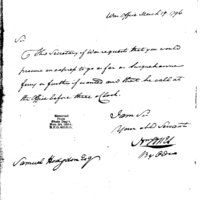 War Office March 19. 1796
Sir
The Secretary of War requests that you would
procure an express to go as far as Susquehanna
ferry or further if wanted and that he call at
the Office before three o'Clock.
I am Sir
Your obd Servant
By Order
Samuel Hodgdon Esq